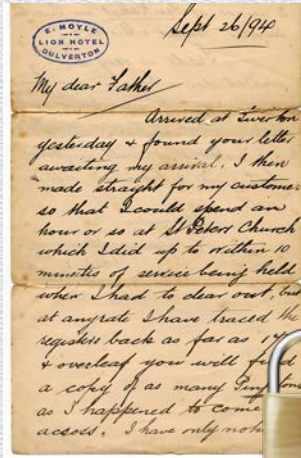 E. MOYLE
LION HOTEL
DULVERTON
Sept 26/94
My dear Father
Arrived at Tiverton
yesterday & found your letter
awaiting my arrival. I then
made straight for my customer
so that I could spend an
hour or so at St Peters Church
which I did up to within 10
minutes of service being held
when I had to clear out, but
at anyrate I have traced the
registers back as far as 17
& overleaf you will find
a copy of as many
as I happened to come
across. I have only